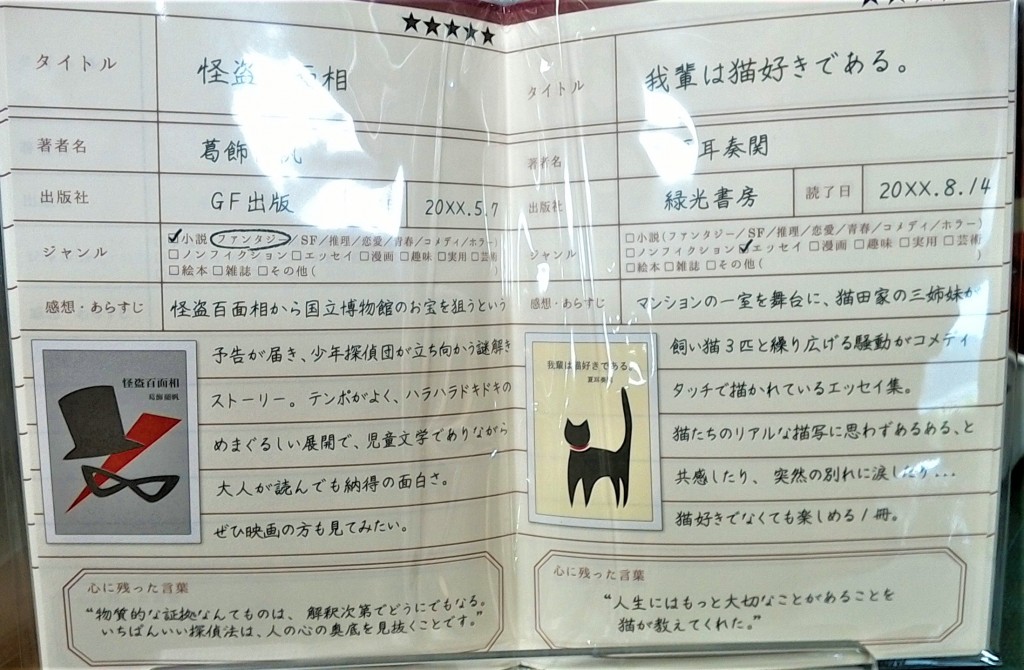 ★★★★★
タイトル
怪盗 面相
著者名
葛飾
出版社
GF出版
20XX.5.7
ジャンル
☑小説(ファンタジー/SF/推理/恋愛/青春/コメディ/ホラー)
□ノンフィクション□エッセイ □漫画 □趣味 □実用 □芸術
□絵本 □雑誌 □その他( )
感想・あらすじ
怪盗百面相から国立博物館のお宝を狙うという
予告が届き、少年探偵団が立ち向かう謎解き
ストーリー。テンポがよく、ハラハラドキドキの
めまぐるしい展開で、児童文学でありながら
大人が読んでも納得の面白さ。
ぜひ映画の方も見てみたい。
怪盗百面相
心に残った言葉
“物質的な証拠なんてものは、解釈次第でどうにでもなる。
いちばんいい探偵法は、人の心の奥底を見抜くことです。”
タイトル
我輩は猫好きである。
著者名
耳奏関
出版社
緑光書房
読了日
20XX.8.14
ジャンル
□小説(ファンタジー/SF/推理/恋愛/青春/コメディ/ホラー)
□ノンフィクション☑エッセイ □漫画 □趣味 □実用 □芸術
□絵本 □雑誌 □その他( )
感想・あらすじ
マンションの一室を舞台に、猫田家の三姉妹が
飼い猫3匹と繰り広げる騒動がコメディ
タッチで描かれているエッセイ集。
猫たちのリアルな描写に思わずあるある、と
共感したり、突然の別れに涙したり...
猫好きでなくても楽しめる1冊。
我輩は猫好きである。
心に残った言葉
“人生にはもっと大切なことがあることを
猫が教えてくれた。”